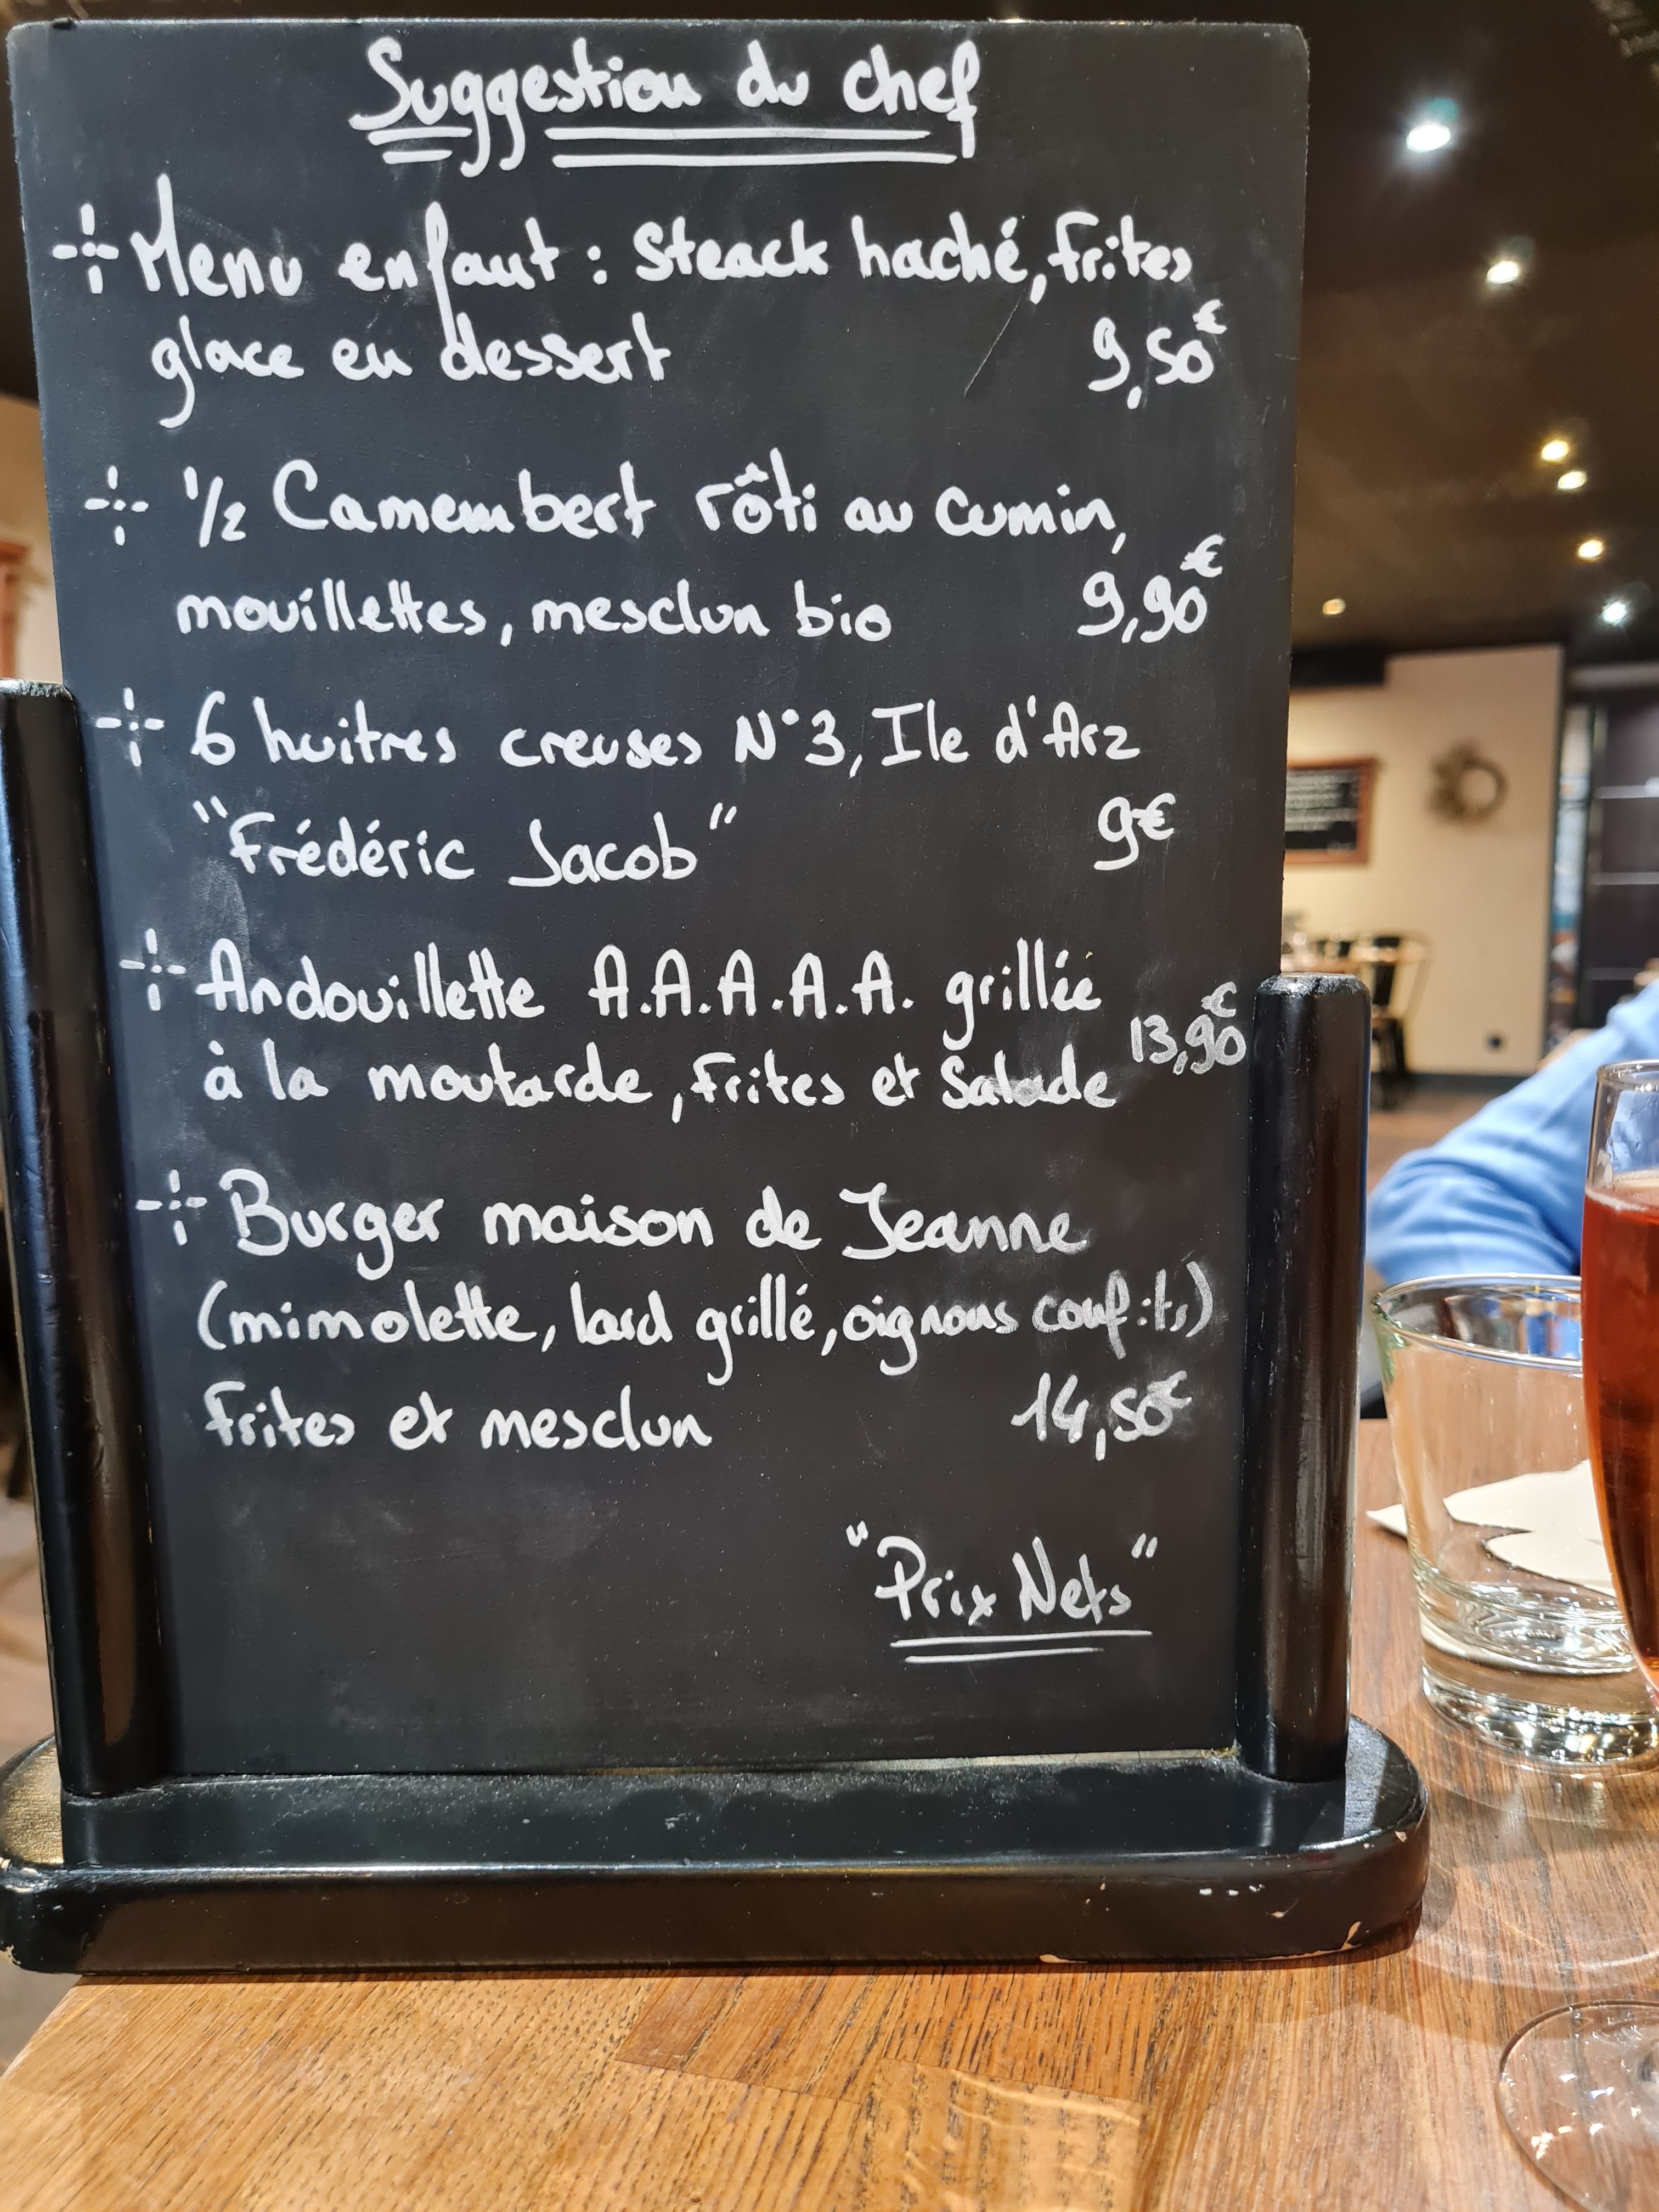 Suggestion du chef
Menu enfant : Steack haché, frites
glace en dessert 9,50€
1/2 Camembert rôti au cumin,
mouillettes, mesclun bio 9,90€
6 huitres creuses N°3, Ile d'Arz
"Frédéric Jacob" 9€
Andouillette A.A.A.A.A. grillée
à la moutarde, frites et Salade 13,90€
Burger maison de Jeanne
(mimolette, lard grillé, oignons confits)
frites et mesclun 14,50€
"Prix Nets"